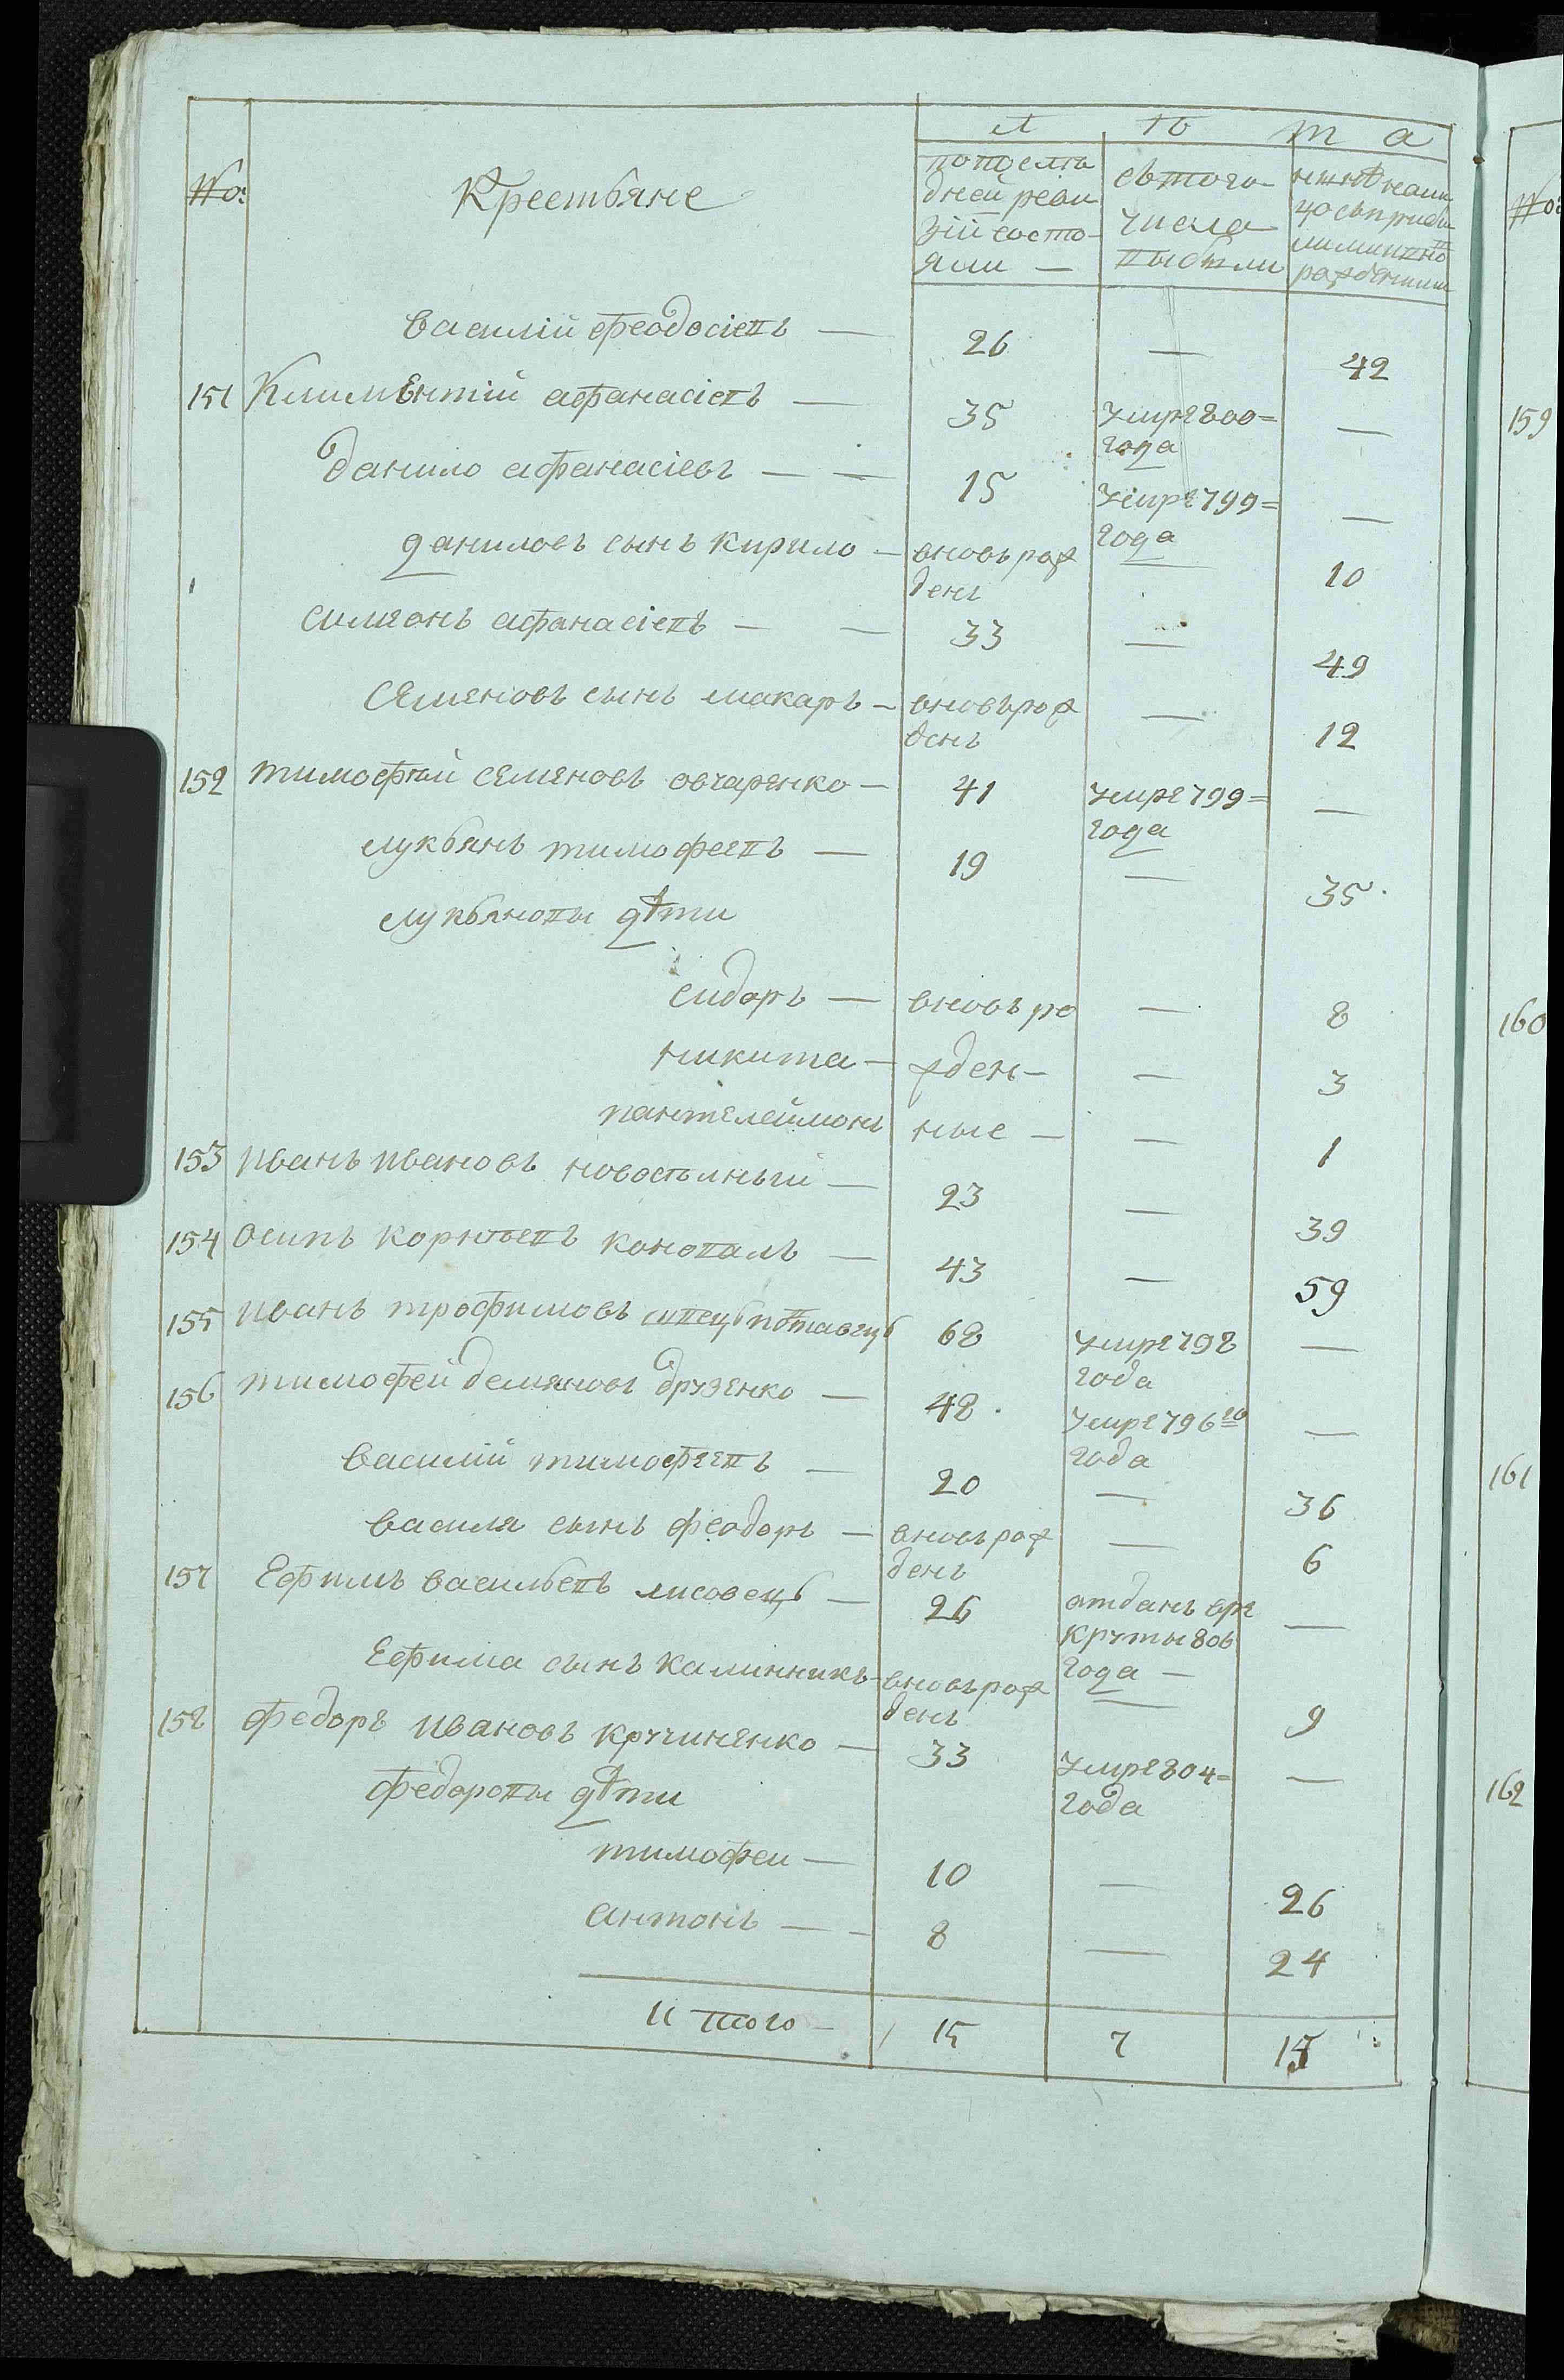 Лѣта
№о: Крестьяне
попослѣ
дней реви
зіи состо-
яли —
изтого
числа
выбыли
нынѣ на ли
цо съ прибы
лыми и вно
рожденными
василій феодосіевъ — 26 — 42
151 Климентій афанасіевъ — 35 умре 800= года —
данило афанасіевъ — — 15 умре 799= года —
даниловъ сынъ кирило — вновь рож день — 10
симеонъ афанасіевъ — — 33 — 49
семеновъ сынъ макаръ — вновь рож денъ — 12
152 тимофѣй семеновъ овчаренко — 41 умре 799= года —
лукьянъ тимофеевъ — 19 — 35
лукьяновы дѣти
сидоръ — вновь ро — 8
никита — жден- — 3
пантелеймонъ ные — — 1
153 иванъ ивановъ новоселный — 23 — 39
154 осипъ корнѣевъ коновалъ — 43 — 59
155 иванъ трофимовъ полтавецъ 68 умре 798 года —
156 тимофей демяновъ друзенко — 48 умре 796го года —
василій тимофеевъ — 20 — 36
василя сынъ феодоръ — вновь рож денъ — 6
157 Ефимъ васильевъ лисовецъ — 26 отданъ вре круты 806 года — —
Ефима сынъ калинникъ — вновь рож денъ — 9
158 федоръ ивановъ кручиненко — 33 умре 804= года —
федоровы дѣти
тимофеи — 10 — 26
антонъ — — 8 — 24
Итого — 15 7 15
159
160
161
162